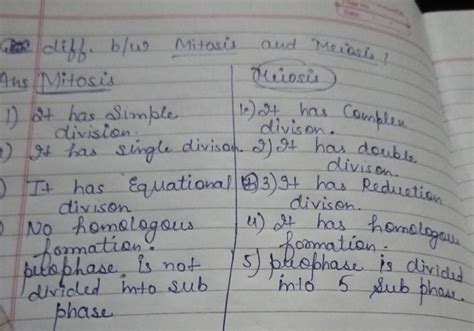 diff. b/w Mitosis and Meiosis?
Ans Mitosis
1) It has Simple
division.
) It has single divison.
) It has Equational
divison
) No homologous
formation.
pelophase, is not
divided into sub
phase
Meiosis
1.) It has Complex
divison.
2) It has double
divison.
3) It has Reduction
divison.
4) It has homologous
formation.
5) prophase is divided
into 5 sub phase.